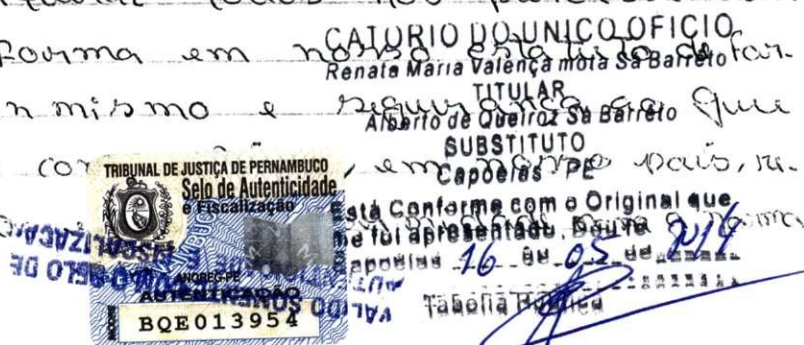 forma em nosso estatuto de far-
n mismo e segurança que
em nosso país, re-
CATORIO DO UNICO OFICIO
Renata Maria Valença mota Sá Barreto
TITULAR
Alberto de Queiroz Sá Barreto
SUBSTITUTO
Capoeiras PE
está Conforme com o Original que
me foi apresentado. Dou fé
apoeiras 16 de 05 de 2014
Tabeliã Pública
TRIBUNAL DE JUSTIÇA DE PERNAMBUCO
Selo de Autenticidade
e Fiscalização
ANOREG-PE
AUTENTICAÇÃO
BQE013954
VALIDO SOMENTE COM O SELO DE
AUTENTICIDADE E FISCALIZAÇÃO